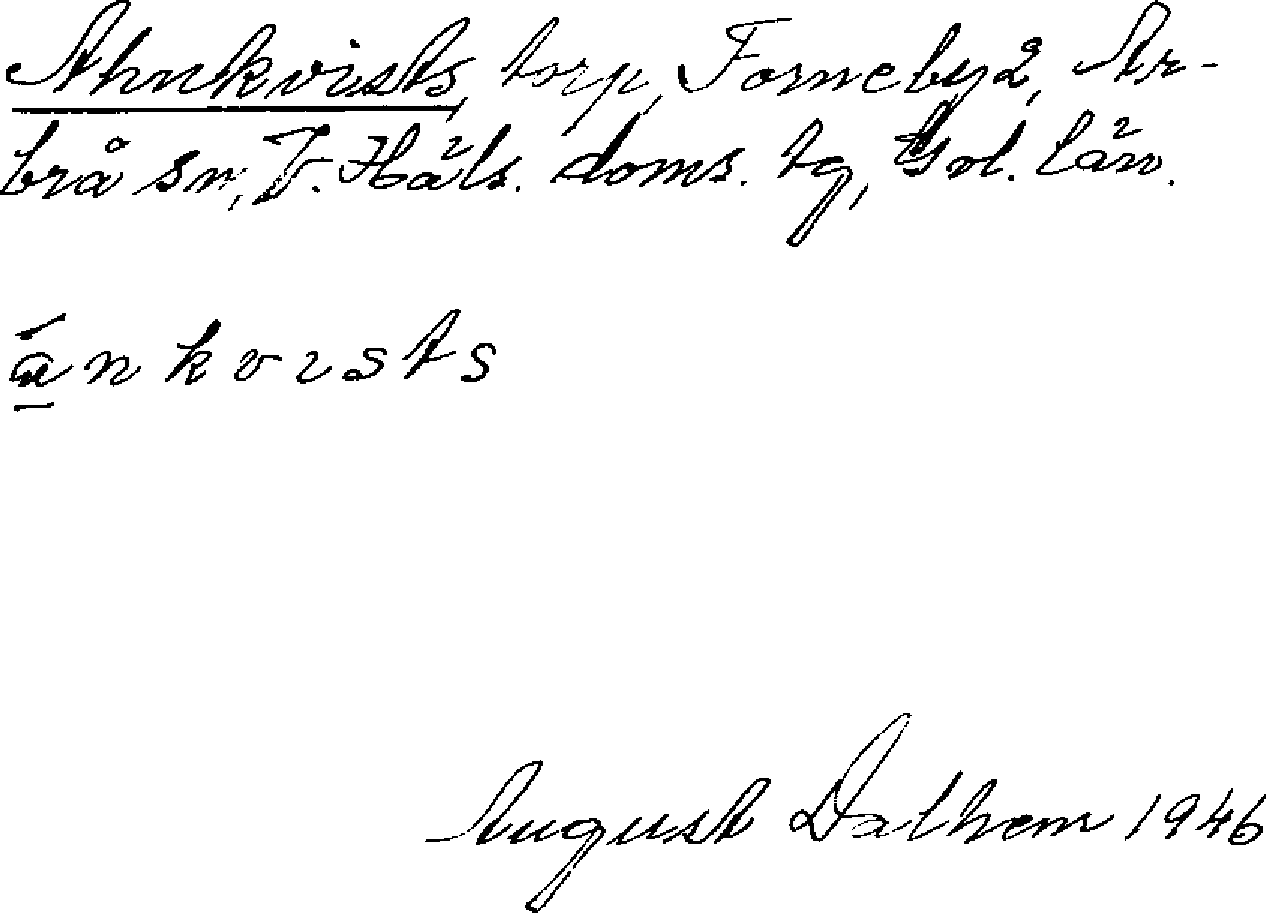 Ahnkvists, torp, Forneby 2, Ar-
brå sn, V. Häls. doms. tg, Gvl. län.
ankvists
August Dalhem 1946